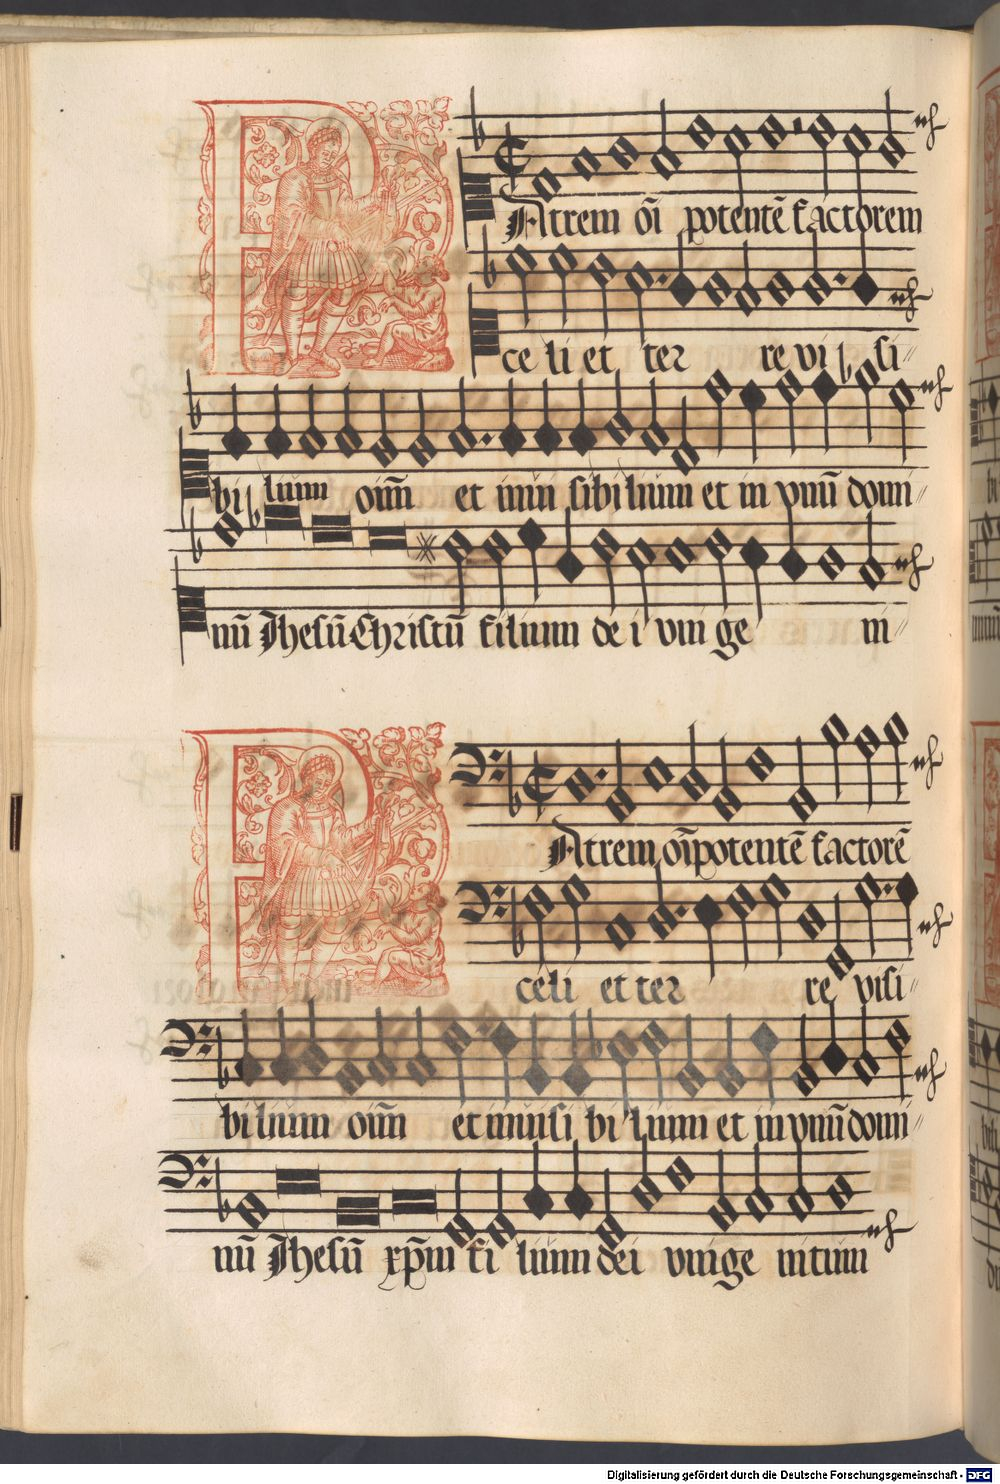 PAtrem oı̄ potentē factorem
celi et ter re vi si
bi lium oim̄ et in vi sibilium et in vnū domi
nū Jhesū Christū filium de i vni ge ni
PAtrem oı̄potentē factorē
celi et ter re visi
bi lium oim̄ et invisi bi lium et in vnū domi
nū Jhesū xp̄m fi lium dei vnige nitum
Digitalisierung gefördert durch die Deutsche Forschungsgemeinschaft - DFG